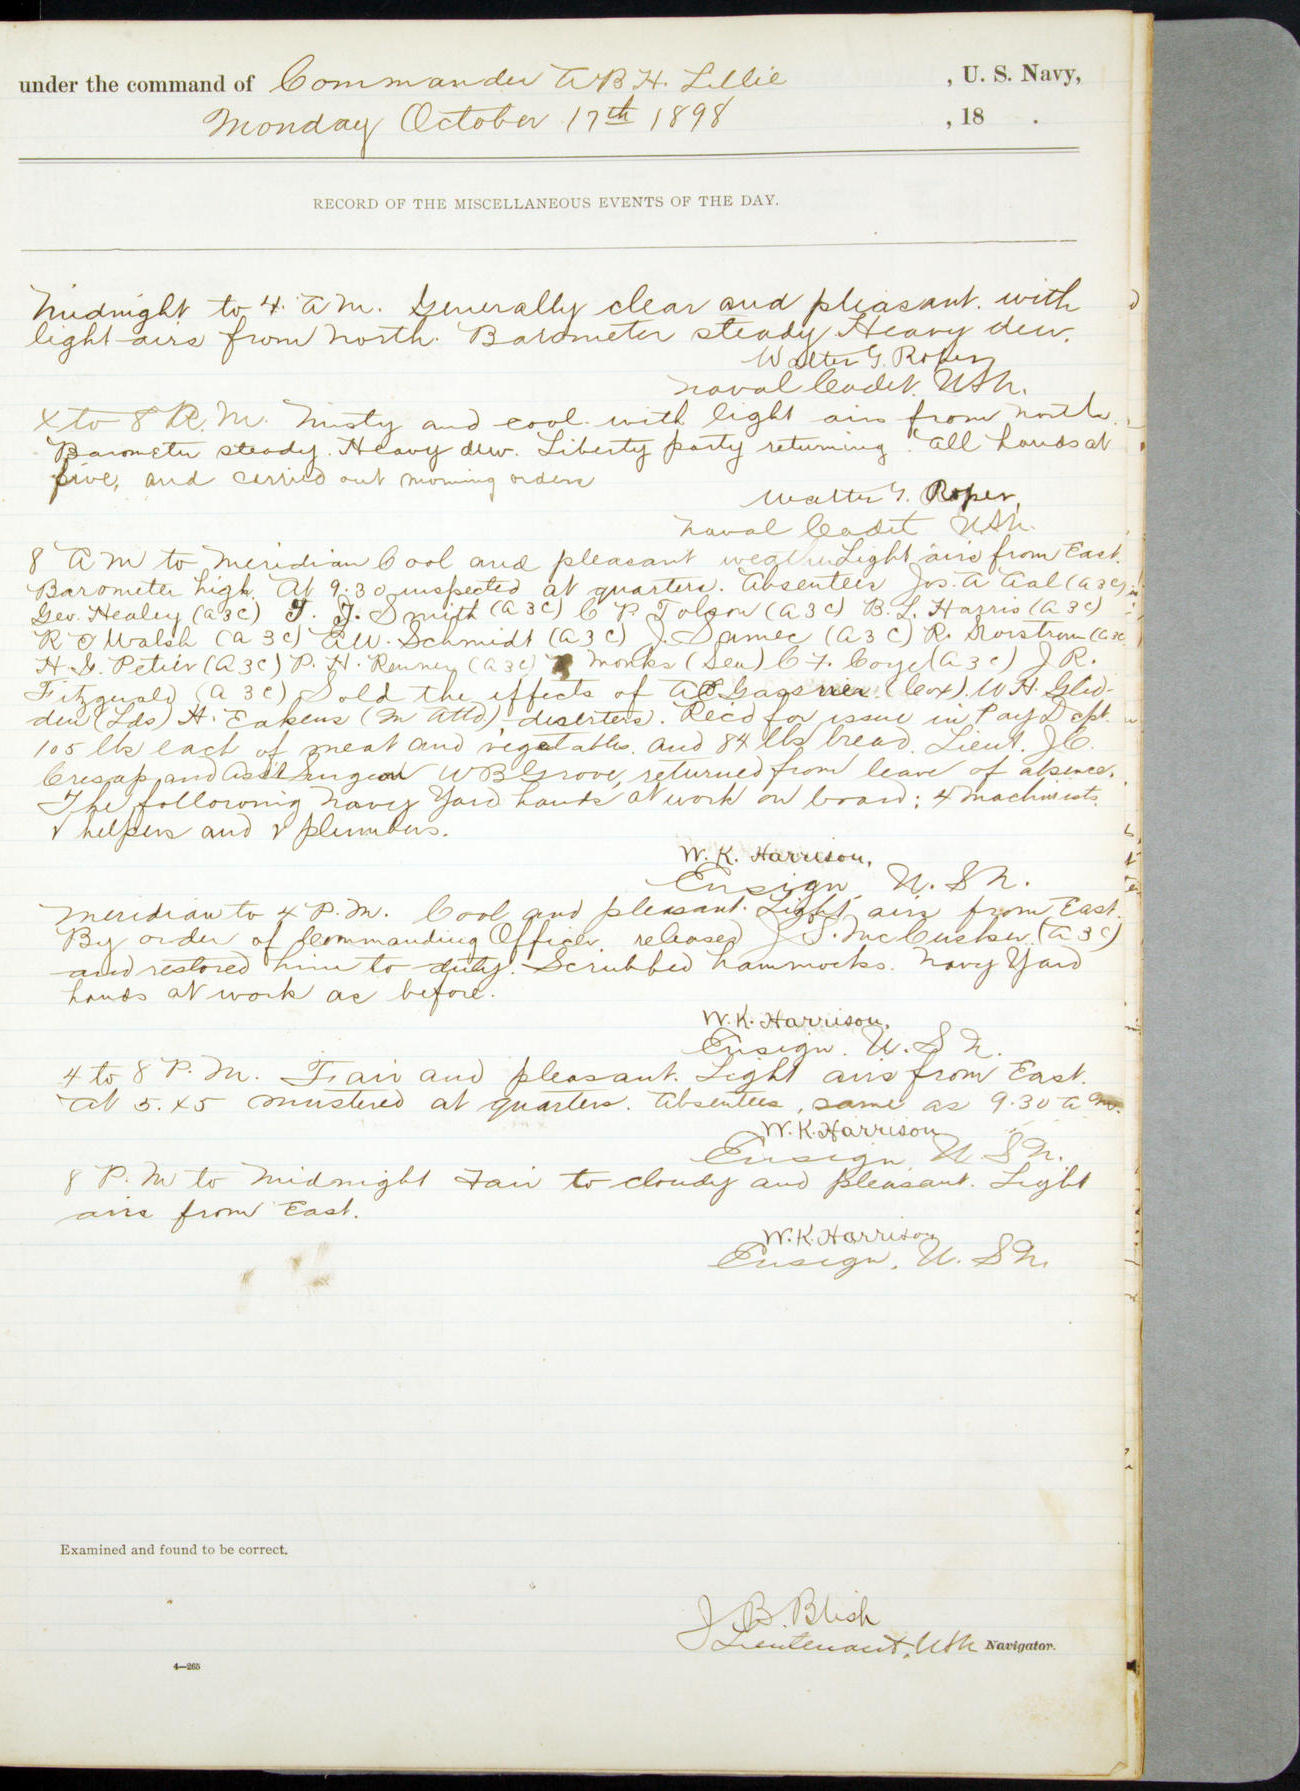 under the command of Commander A B H. Lillie , U. S. Navy,
Monday October 17th 1898 , 18 .
RECORD OF THE MISCELLANEOUS EVENTS OF THE DAY.
Midnight to 4. A M. Generally clear and pleasant. with
light airs from North. Barometer steady Heavy dew.
Walter G. Roper
Naval Cadet. USN.
4 to 8 A. M. Misty and cool. with light airs from North.
Barometer steady. Heavy dew. Liberty party returning. All hands at
five, and carried out morning orders
Walter G. Roper,
Naval Cadet USN.
8 A M to Meridian Cool and pleasant Light airs from East.
Barometer high. At 9:30 inspected at quarters. Absentees Jos. A Aal (a 3 c)
Geo. Healey (a 3 c) T. J. Smith (a 3 c) C P Tolson (a 3 c) B. L. Harris (a 3 c)
R Walsh (a 3 c) A W. Schmidt (a 3 c) J. Samec (a 3 c) R. Norstrom (a 3 c
H. G. Petier (a 3 c) P. H. Renner (a 3 c) Monks (Sea) C F. Coye (a 3 c) J. R.
Fitzgerald (a 3 c) Sold the effects of Gassner (Cox). W H. Glid-
den (Lds) H. Eakens (M Attd) deserters. Rec'd for issue in Pay Dept.
105 lbs each of meat and vegetables. and 84 lbs bread. Lieut. J. C.
Cresap, and Ass't Surgeon W B Grove, returned from leave of absence.
The following Navy Yard hands at work on board; 4 machinists.
2 helpers and 2 plumbers.
W. K. Harrison,
Ensign U. S N.
Meridian to 4 P. M. Cool and pleasant. Light airs from East.
By order of Commanding Officer. released J S. McCusker. (a 3 c)
and restored him to duty. Scrubbed hammocks. Navy Yard
hands at work as before.
W. K. Harrison,
Ensign. U. S N.
4 to 8 P. M. Fair and pleasant. Light airs from East.
At 5.45 mustered at quarters. Absentees, same as 9.30 a m.
W. K. Harrison
Ensign U S N.
8 P. M to Midnight Fair to cloudy and pleasant. Light
airs from East.
W. K. Harrison
Ensign, U. S N.
Examined and found to be correct.
J B. Blish
Lieutenant, USN Navigator.
4—265